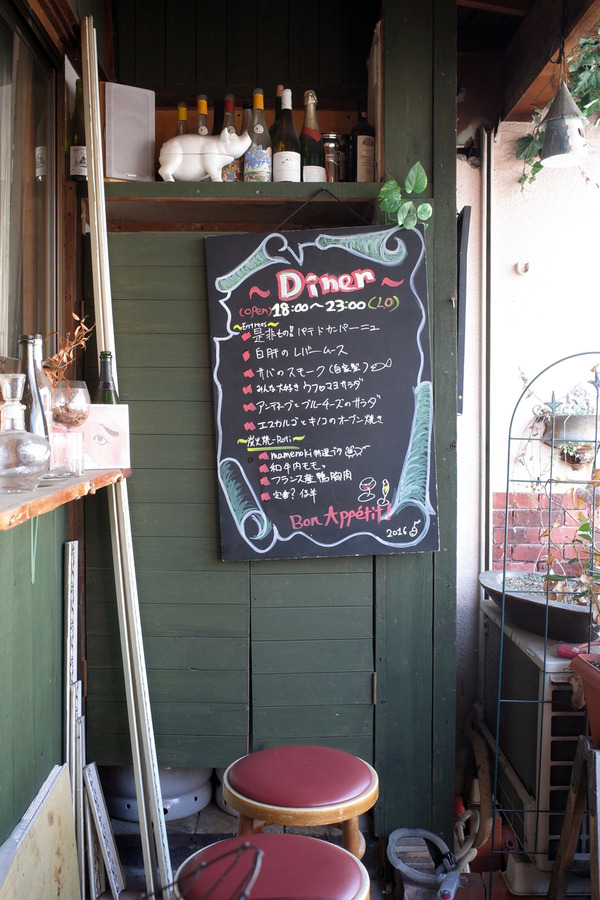 ~ Diner ~
(open) 18:00~23:00 (L.O)
~Entrees~
是非もの!! パテドカンパーニュ
白肝のレバームース
サバのスモーク(自家製)
みんな大好き ウフマヨサラダ
アンディーブとブルーチーズのサラダ
エスカルゴとキノコのオーブン焼き
~炭火焼-Roti~
mamenoki特選
和牛モモ
フランス産 鴨胸肉
定番? 仔羊
Bon Appétit!
2016